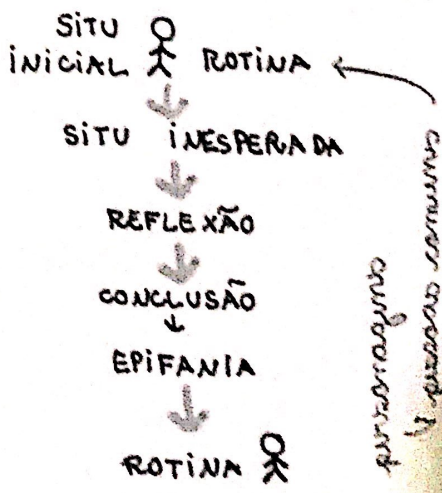 SITU
INICIAL ROTINA
SITU INESPERADA
REFLEXÃO
CONCLUSÃO
EPIFANIA
ROTINA